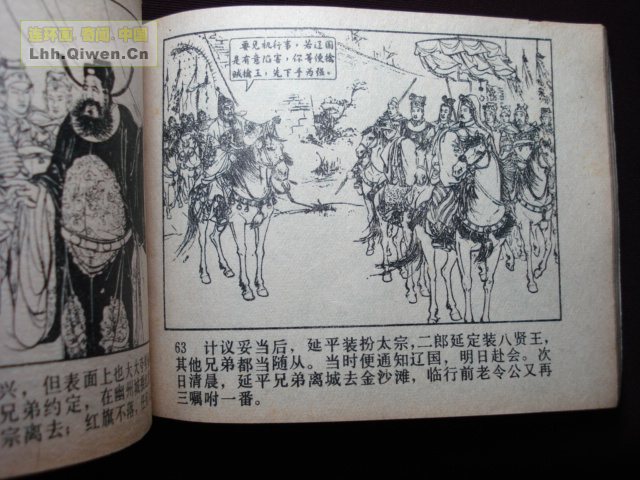 连环画.奇闻.中国
Lhh.Qiwen.Cn
要见机行事，若辽国
是有意陷害，你等便擒
贼擒王，先下手为强。
兴，但表面上也大大
兄弟约定，在幽州城
宗离去；红旗不落，
63 计议妥当后，延平装扮太宗，二郎延定装八贤王，
其他兄弟都当随从。当时便通知辽国，明日赴会。次
日清晨，延平兄弟离城去金沙滩，临行前老令公又再
三嘱咐一番。